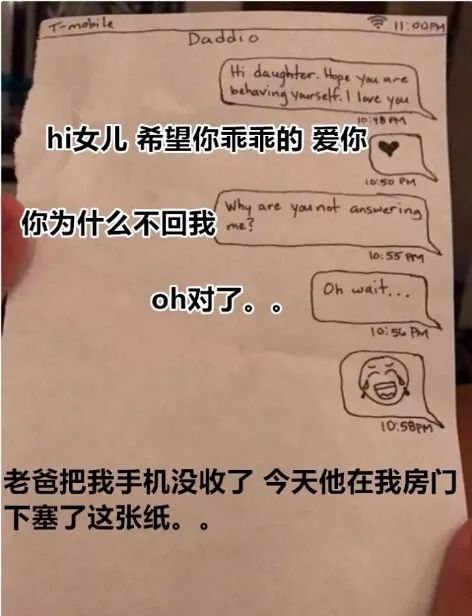 T-mobile 11:00PM
Daddio
Hi daughter. Hope you are
behaving yourself. I love you
10:48PM
hi女儿 希望你乖乖的 爱你
10:50 PM
你为什么不回我
Why are you not answering
me?
10:55 PM
oh对了。。
Oh wait...
10:56 PM
10:58PM
老爸把我手机没收了 今天他在我房门
下塞了这张纸。。